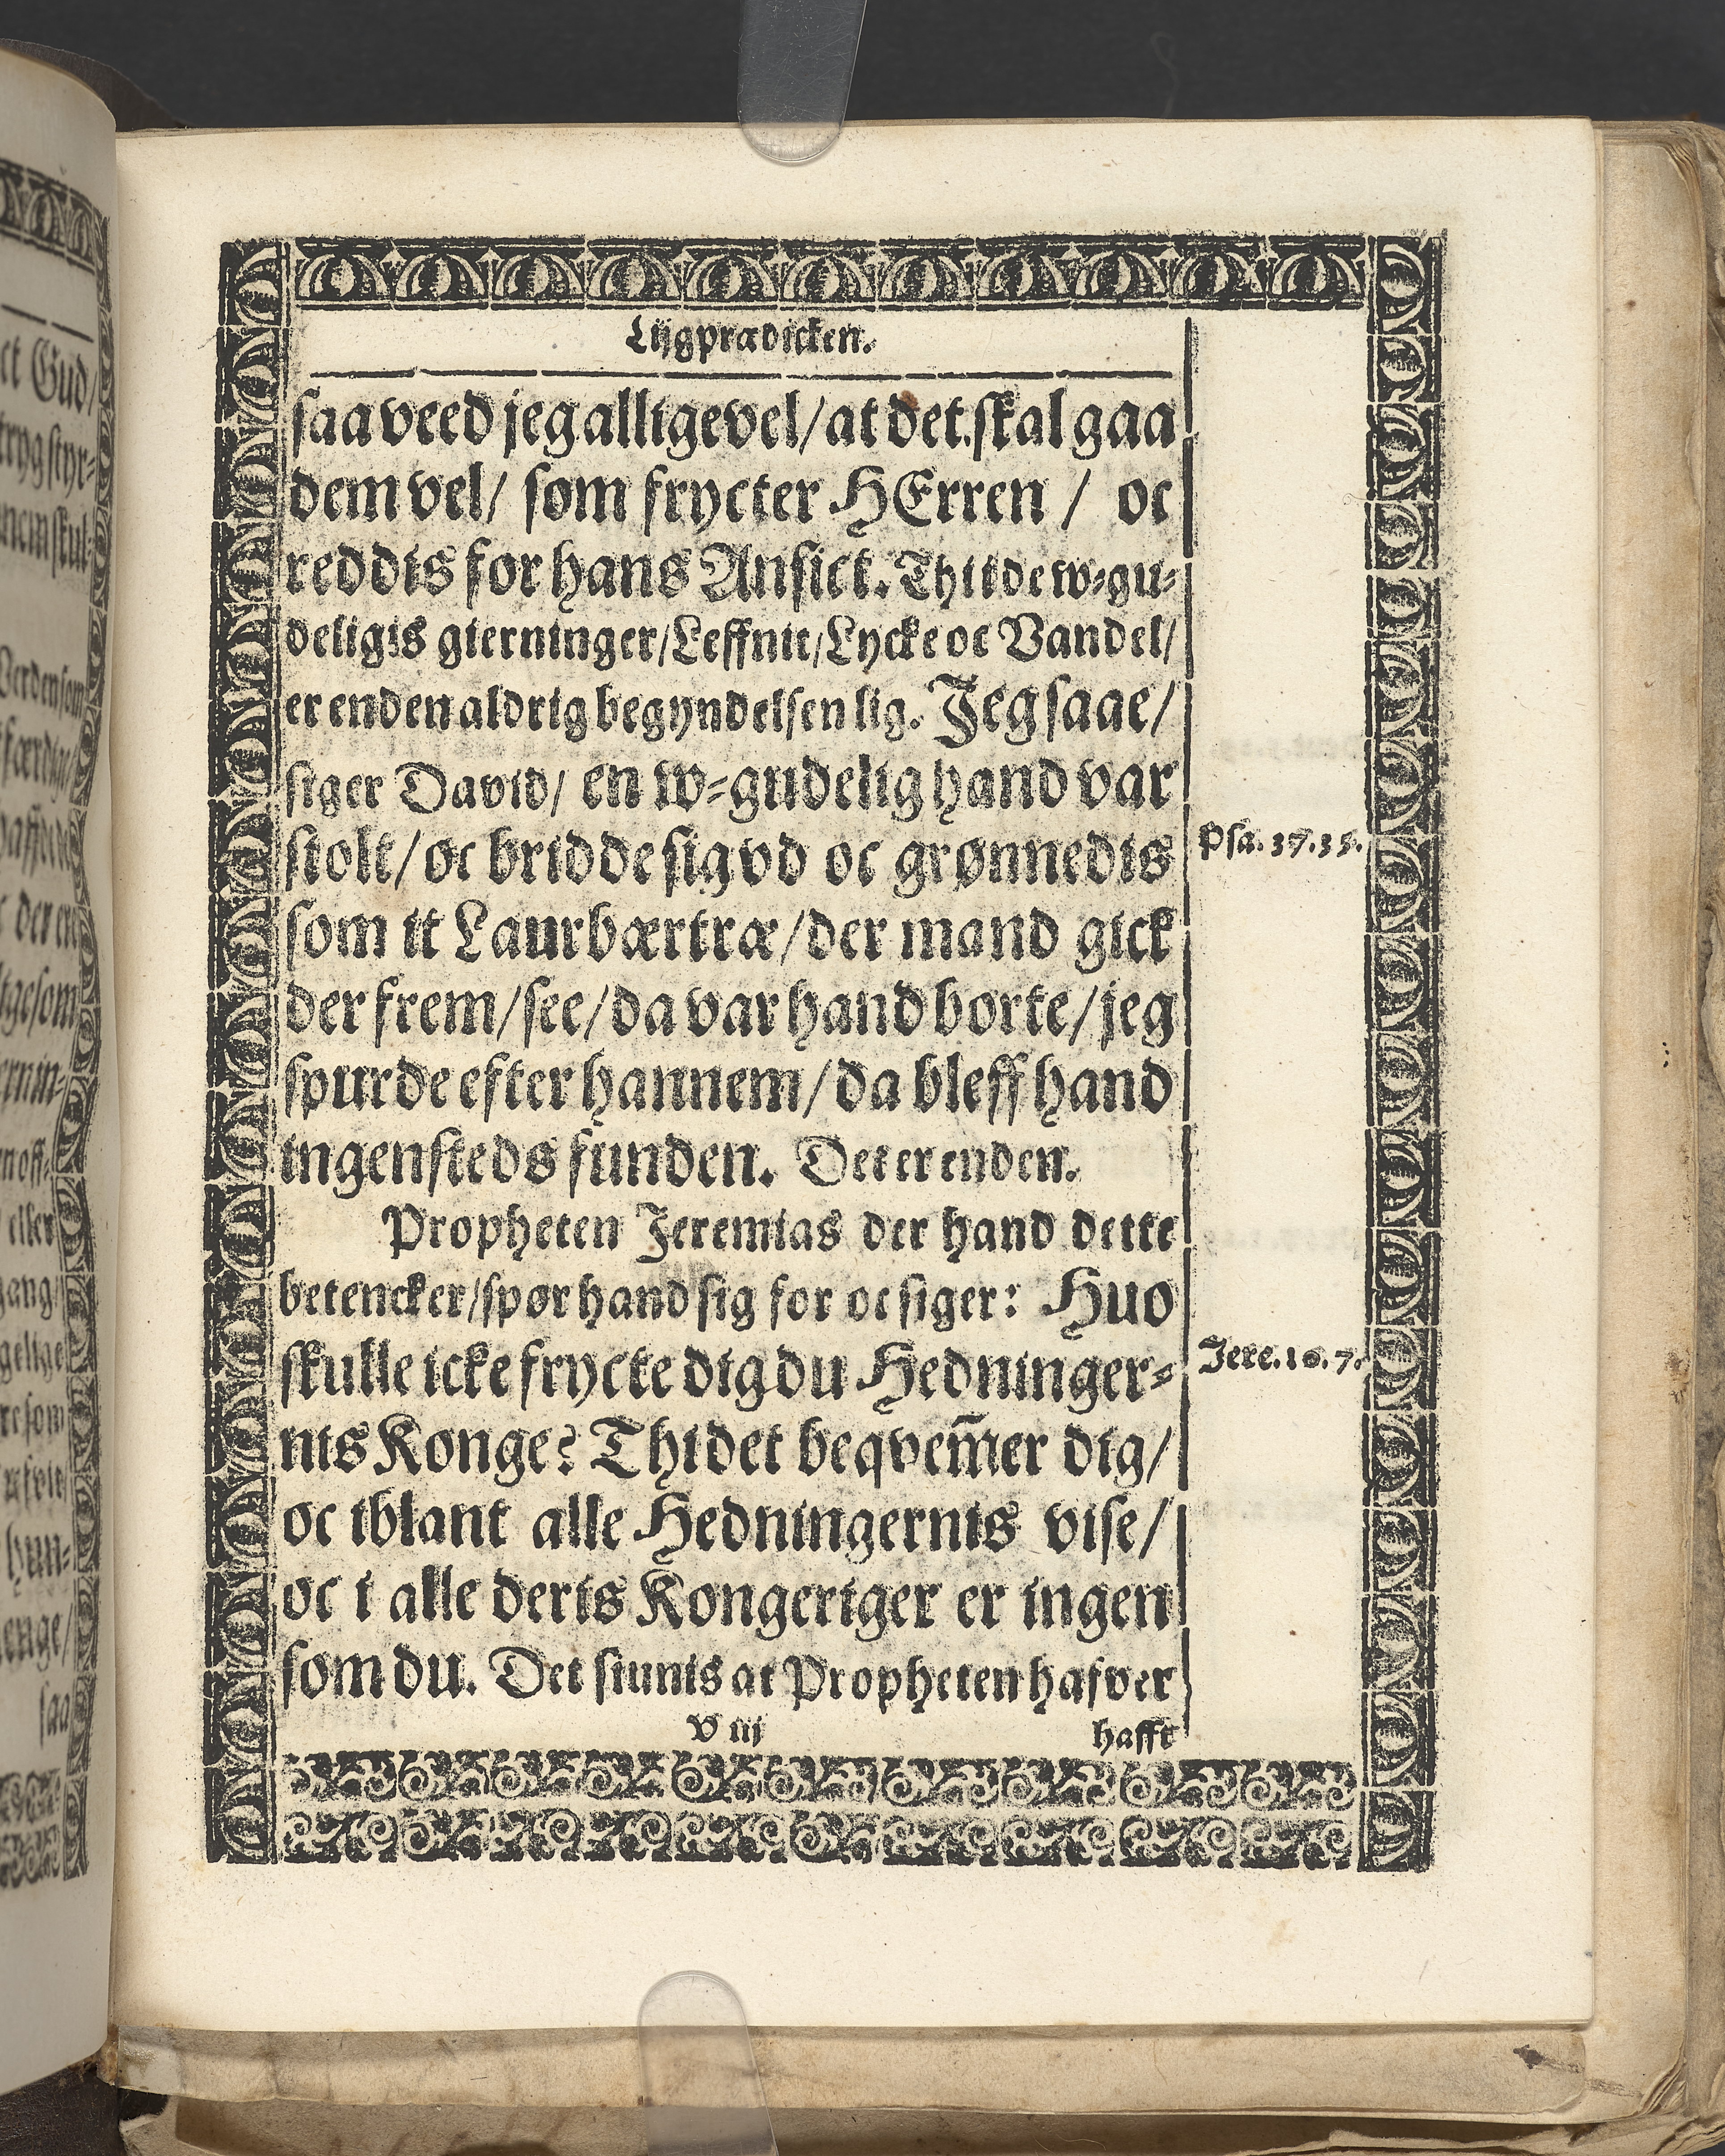 Lijgprædicken.
saa veed jeg alligevel/ at det skal gaa
dem vel/ som frycter HErren / oc
reddis for hans Ansict. Thi i de w-gu-
deligis gierninger/ Leffnit/ Lycke oc Vandel/
er enden aldrig begyndelsen lig. Jeg saae/
siger David/ en w-gudelig hand var
stolt/ oc bridde sig vd oc grønnedis
Psa. 37.35.
som it Laurbærtræ/ der mand gick
der frem/ see/ da var hand borte/ jeg
spurde efter hannem/ da bleff hand
ingensteds funden. Det er enden.
Propheten Jeremias der hand dette
betencker/ spør hand sig for oc siger: Huo
skulle icke frycte dig du Hedninger-
Jere. 10. 7.
nis Konge? Thi det beqvem̃er dig/
oc iblant alle Hedningernis vise/
oc i alle deris Kongeriger er ingen
som du. Det siunis at Propheten hafver
V iij
hafft
ct Gud/
tryg styr-
skul-
Verden som
der en
ligesom
ernin-
eller
gang/
gelige
re som
hun-
enge/
saa